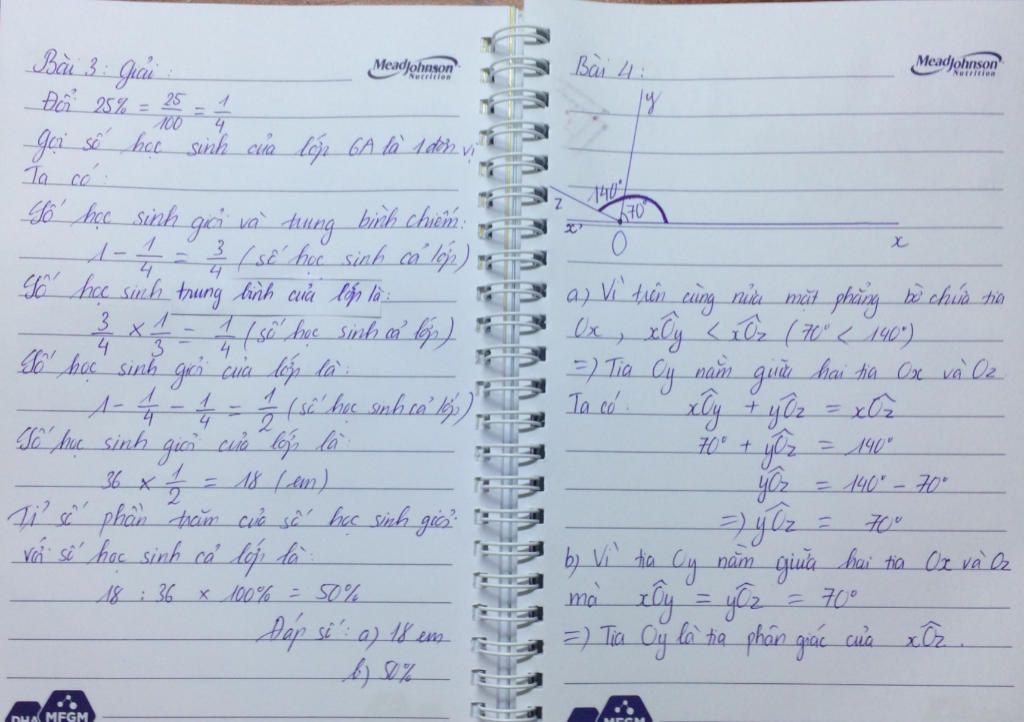 Bài 3: Giải:
MeadJohnson
Nutrition
Đổi 25% = 25/100 = 1/4
Gọi số học sinh của lớp 6A là 1 đơn vị
Ta có:
Số học sinh giỏi và trung bình chiếm:
1 - 1/4 = 3/4 (số học sinh cả lớp)
Số học sinh trung bình của lớp là:
3/4 × 1/3 = 1/4 (số học sinh cả lớp)
Số học sinh giỏi của lớp là:
1 - 1/4 - 1/4 = 1/2 (số học sinh cả lớp)
Số học sinh giỏi của lớp là:
36 × 1/2 = 18 (em)
Tỉ số phần trăm của số học sinh giỏi
với số học sinh cả lớp là:
18 : 36 × 100% = 50%
Đáp số: a) 18 em
b) 50%
DHA MFGM
Bài 4:
MeadJohnson
Nutrition
y
z 140° 70°
x' O x
a) Vì trên cùng nửa mặt phẳng bờ chứa tia
Ox, xÔy < xÔz (70° < 140°)
=) Tia Oy nằm giữa hai tia Ox và Oz
Ta có: xÔy + yÔz = xÔz
70° + yÔz = 140°
yÔz = 140° - 70°
=) yÔz = 70°
b) Vì tia Oy nằm giữa hai tia Ox và Oz
mà xÔy = yÔz = 70°
=) Tia Oy là tia phân giác của xÔz.
MFGM